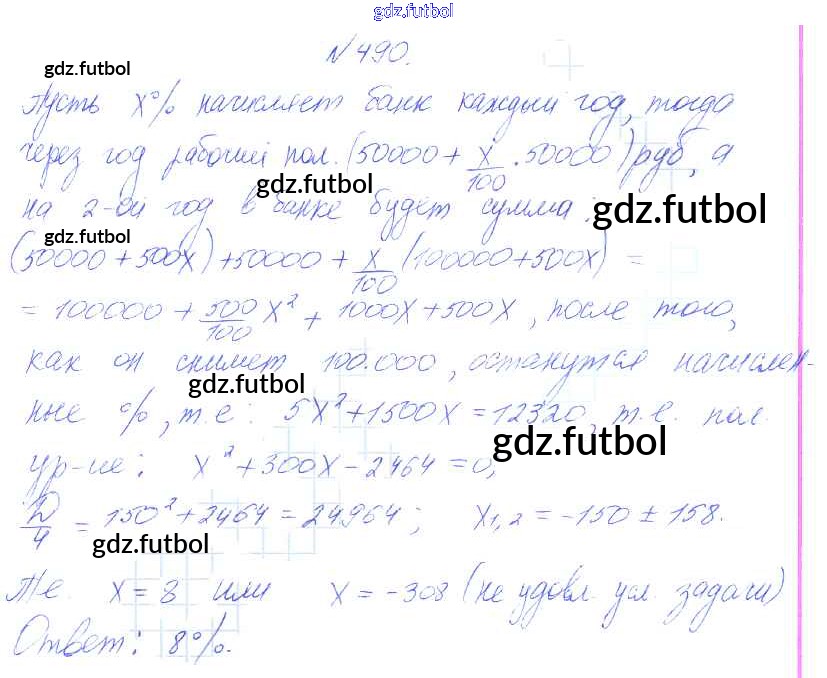 gdz.futbol
№490.
gdz.futbol
Пусть x% начисляет банк каждый год, тогда
через год рабочий пол. (50000 + x/100 · 50000) руб, а
gdz.futbol
на 2-ой год в банке будет сумма:
gdz.futbol
gdz.futbol
(50000 + 500x) + 50000 + x/100 (100000 + 500x) =
= 100000 + 500/100 x² + 1000x + 500x, после того,
как он снимет 100.000, останутся начислен-
gdz.futbol
ные %, т.е: 5x² + 1500x = 12320, т.е. пол.
gdz.futbol
ур-ие: x² + 300x - 2464 = 0,
D/4 = 150² + 2464 = 24964; x1,2 = -150 ± 158.
gdz.futbol
Т.е. x = 8 или x = -308 (не удовл. усл. задачи)
Ответ: 8%.